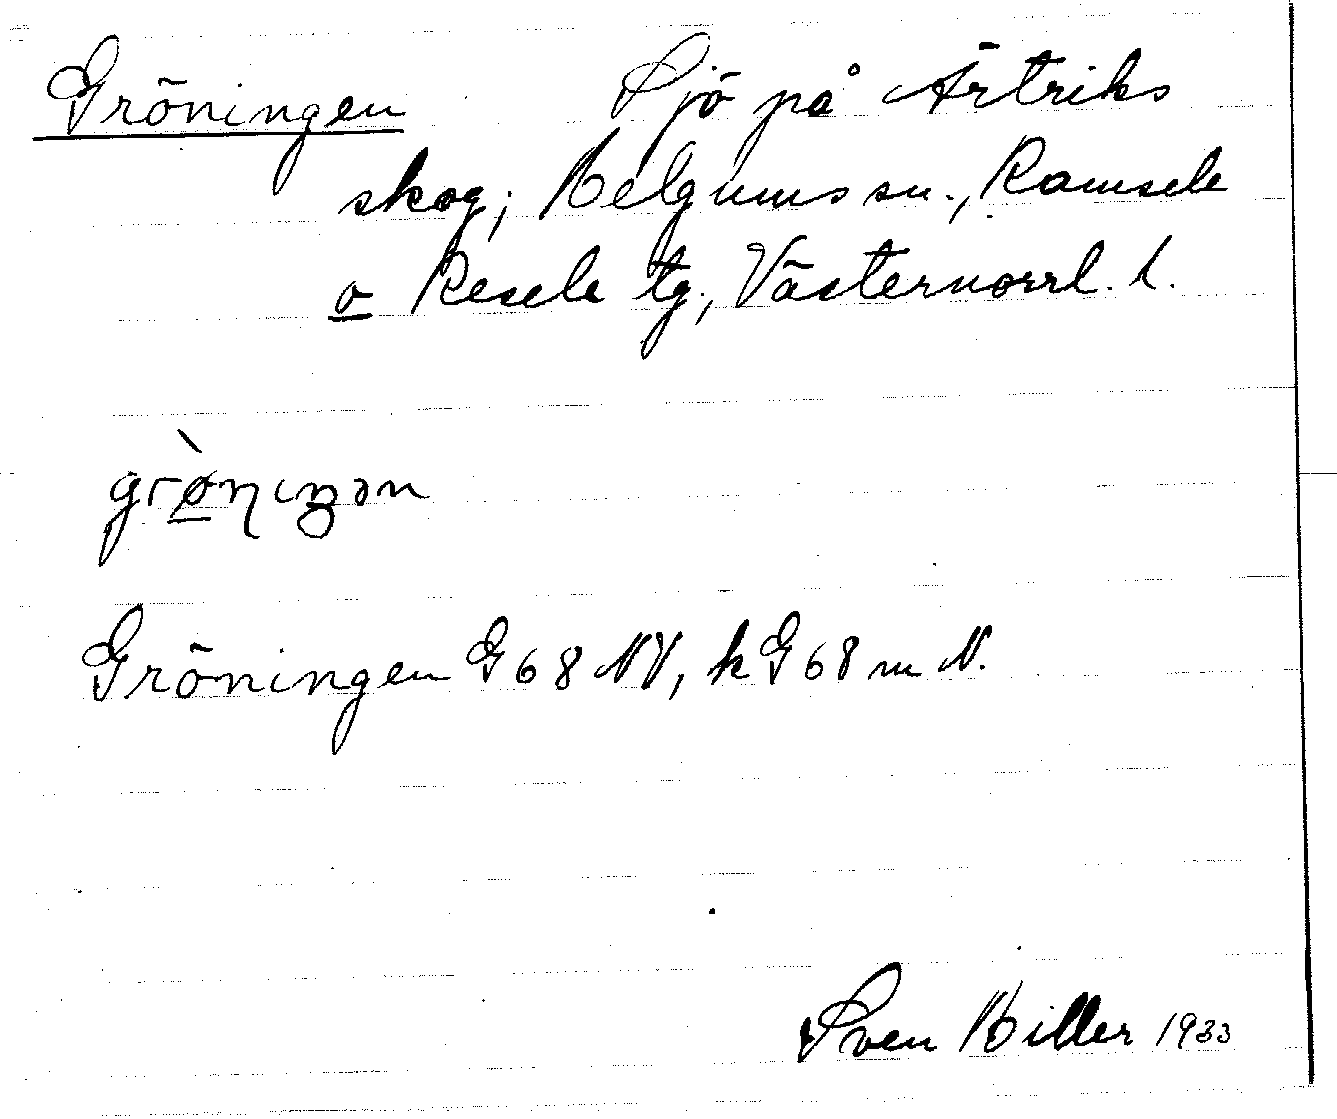 Gröningen Sjö på Ärtriks
skog; Helgums sn., Ramsele
o Resele tg, Västernorrl. l.
grø̀nıŋən
Gröningen G 68 NV, k G 68 m N.
Sven Hiller 1933